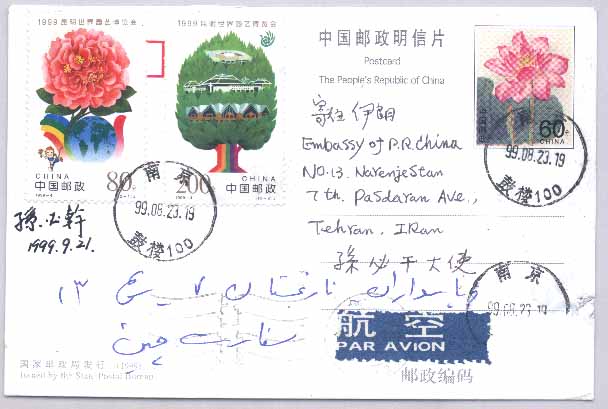 1999昆明世界园艺博览会
1999昆明世界园艺博览会
中国邮政明信片
Postcard
The People's Republic of China
CHINA
中国邮政
80分
CHINA
中国邮政
200分
60分
CHINA
南京
99.08.23.19
鼓楼100
南京
99.08.23.19
鼓楼100
寄往伊朗
Embassy of P.R.China
No.13. Narenjestan
7th. Pasdaran Ave.,
Tehran, IRan
孫必干大使
孫必幹
1999.9.21.
南京
99.08.23.19
پاسداران نارنجستان ۷ ۱۳
سفارت چین
航空
PAR AVION
国家邮政局发行 (1999)
Issued by the State Postal Bureau
邮政编码